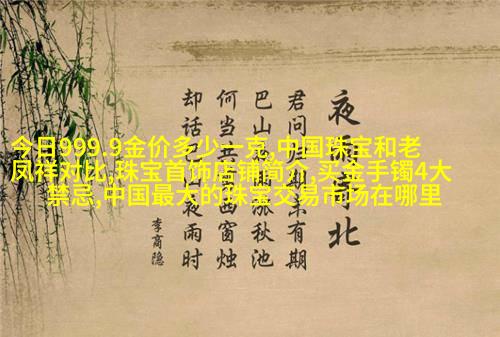 今日999.9金价多少一克,中国珠宝和老
凤祥对比,珠宝首饰店铺简介,买金手镯4大
禁忌,中国最大的珠宝交易市场在哪里
夜北
君问未有期
巴山秋池
何当西窗烛
却话夜雨时
李商隐